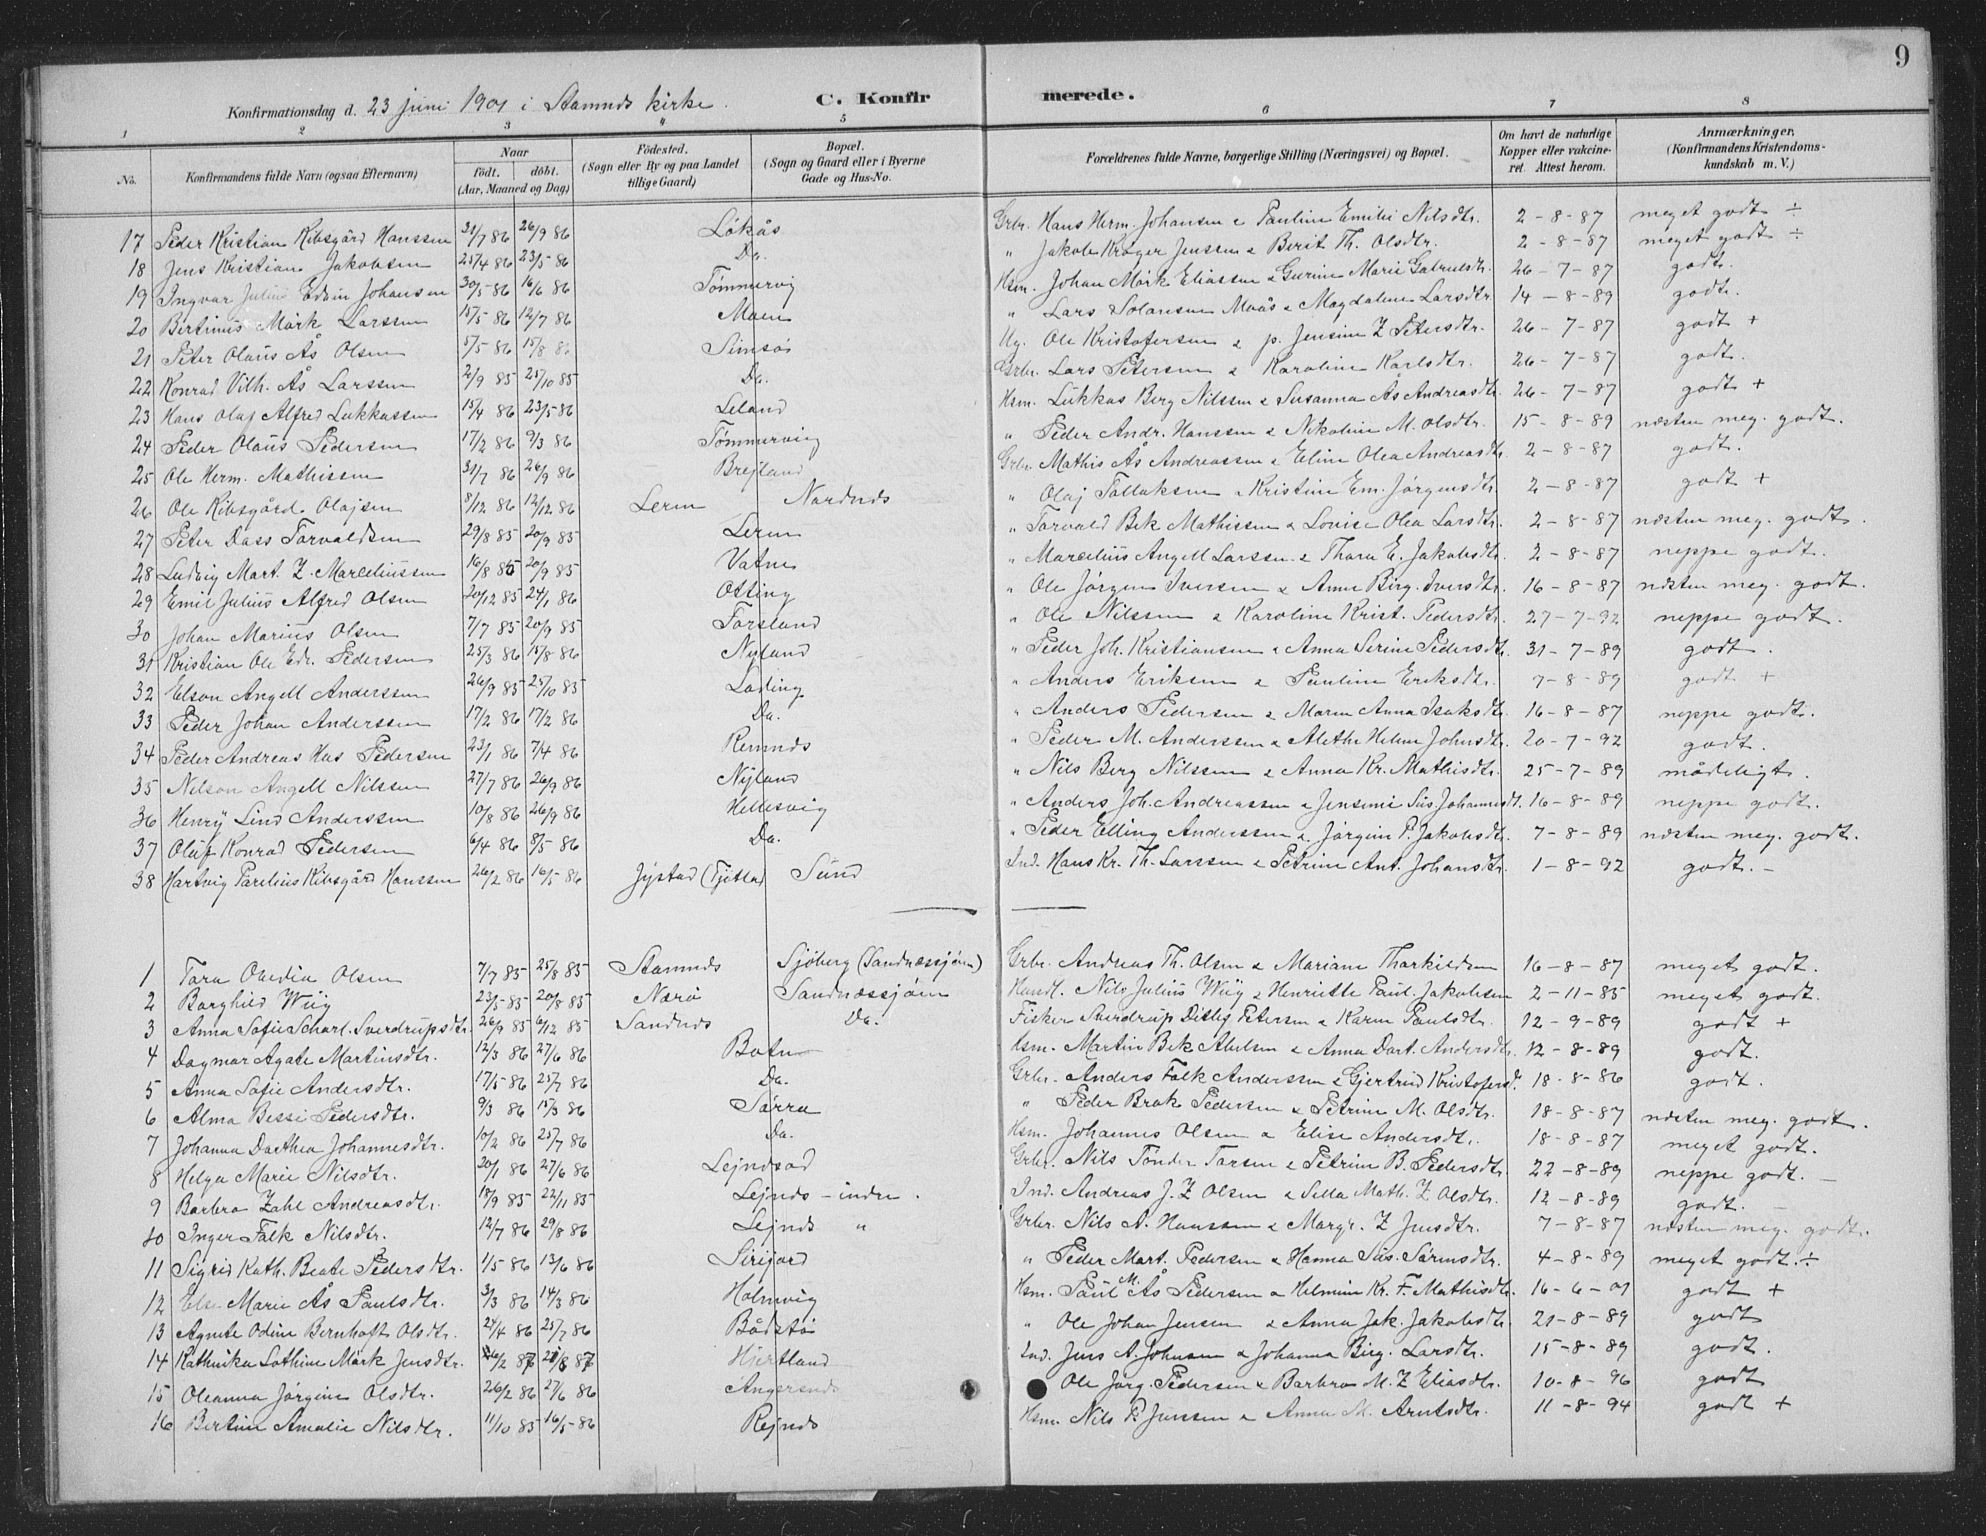 9
Konfirmationsdag d. 23 juni 1901 i Stamnæs kirke. C. Konfirmerede.
1 2 3 4 5 6 7 8
No. Konfirmandens fulde Navn (ogsaa Efternavn) Naar födt. döbt. (Aar, Maaned og Dag) Födested. (Sogn eller By og paa Landet tillige Gaard) Bopæl. (Sogn og Gaard eller i Byerne Gade og Hus-No. Forældrenes fulde Navne, borgerlige Stilling (Næringsvei) og Bopæl. Om havt de naturlige Kopper eller vakcineret. Attest herom. Anmærkninger, (Konfirmandens Kristendomskundskab m. V.)
17 Peder Kristian Ribsgård Hanssen 31/7 86 26/9 86 Løkås Grbr. Hans Herm. Johansen & Pauline Emilie Nilsdtr. 2-8-87 meget godt ÷
18 Jens Kristian Jakobsen 25/4 86 23/5 86 Do. " Jakob Krøger Jenssen & Berit Th. Olsdtr. 2-8-87 meget godt ÷
19 Ingvar Julius Edvin Johansen 30/5 86 16/6 86 Tømmervig Hsm. Johan Mörk Eliassen & Gurine Marie Gabrielsdtr. 26-7-87 godt.
20 Bertinus Mörk Larssen 15/5 86 12/7 86 Moen " Lars Solansen Moås & Magdalena Larsdtr. 14-8-89 godt.
21 Peter Olaus Ås Olsen 5/5 86 15/8 86 Simsøi Ug. Ole Kristofersen & p. Jensine Z Petersdtr. 26-7-87 godt +
22 Konrad Vilh. Ås Larssen 2/9 85 25/10 85 Do. Grbr. Lars Petersen & Karoline Karlsdtr. 26-7-87 godt.
23 Hans Olaj Alfred Lukkassen 15/4 86 23/5 86 Leland Hsm. Lukkas Berg Nilssen & Susanna Ås Andreasdtr. 26-7-87 godt +
24 Peder Olaus Pedersen 17/2 86 9/3 86 Tømmervig " Peder Andr. Hanssen & Nikoline M. Olsdtr. 15-8-89 næsten meg. godt.
25 Ole Herm. Mathissen 31/7 86 26/9 86 Brejland Grbr. Mathis Ås Andreassen & Eline Olea Andreasdtr. 2-8-87 godt.
26 Ole Ribsgård Olajsen 8/12 86 12/12 86 Lerm Nordnæs " Olaj Tollaksen & Kristine Em. Jørgensdtr. 2-8-87 godt +
27 Peter Dass Torvaldsen 29/8 85 20/9 85 Lerm " Torvald Bek Mathissen & Lovise Olea Larsdtr. 2-8-87 næsten meg. godt.
28 Ludvig Mart. Z. Marceliussen 16/8 85 20/9 85 Vatne " Marcelius Angell Larssen & Thora E. Jakobsdtr. 2-8-87 neppe godt.
29 Emil Julius Alfred Olsen 20/12 85 24/1 86 Otting " Ole Jørgen Iversen & Anne Birg. Iversdtr. 16-8-87 næsten meg. godt.
30 Johan Marius Olsen 7/7 85 20/9 85 Torsland " Ole Nilssen & Karoline Krist. Pedersdtr. 27-7-92 neppe godt.
31 Kristian Ole Edv. Pedersen 25/3 86 15/8 86 Nyland " Peder Joh. Kristiansen & Anna Serine Pedersdtr. 31-7-89 godt.
32 Elson Angell Anderssen 26/9 85 25/10 85 Lading " Anders Eriksen & Pauline Eriksdtr. 7-8-89 godt +
33 Peder Johan Anderssen 17/2 86 17/2 86 Do. " Anders Pedersen & Maren Anna Isaksdtr. 16-8-87 neppe godt.
34 Peder Andreas Hus Pedersen 23/1 86 7/4 86 Remnæs " Peder M. Anderssen & Alethe Helene Johnsdtr. 20-7-92 godt.
35 Nelson Angell Nilssen 27/7 86 26/9 86 Nyland " Nils Berg Nilssen & Anna Kr. Mathisdtr. 25-7-89 mådeligt.
36 Henry Lind Anderssen 10/8 86 26/9 86 Hellesvig " Anders Joh. Andreassen & Jensine Sus. Johannesdt. 16-8-89 neppe godt.
37 Oluf Konrad Pedersen 6/4 86 8/5 86 Do. " Peder Elling Anderssen & Jørgine P. Jakobsdtr. 7-8-89 næsten meg. godt.
38 Hartvig Parelius Ribsgård Hanssen 26/2 86 16/5 86 Jystad (Tjøtta) Sund Ind. Hans Kr. Th. Larssen & Petrine Ant. Johansdtr. 1-8-92 godt. -
1 Tora Ovedia Olsen 7/7 85 25/8 85 Stamnæs Sjøberg (Sandnæssjøen) Grbr. Andreas Th. Olsen & Mariane Tharkildsen 16-8-87 meget godt.
2 Borghild Wiig 23/5 85 20/8 85 Nærø Sandnæssjøen Handl. Nils Julius Wiig & Henriette Paul. Jakobsen 2-11-85 meget godt.
3 Anna Sofie Scharl. Sverdrupsdtr. 26/9 85 6/12 85 Sandnæs Do. Fisker Sverdrup Ditlef Petersen & Karen Paulsdtr. 12-9-89 godt +
4 Dagmar Agate Martinsdtr. 12/3 86 27/6 86 Botn Hsm. Martin Bek Abelsen & Anna Dort. Andersdtr. 12-8-89 godt.
5 Anna Sofie Andersdtr. 17/5 86 25/7 86 Do. Grbr. Anders Falk Anderssen & Gjertrud Kristofersd. 18-8-86 godt.
6 Alma Bessi Pedersdtr. 9/3 86 15/3 86 Sørra " Peder Brok Pedersen & Petrine M. Olsdtr. 18-8-87 næsten meg. godt.
7 Johanna Dorthea Johannesdtr. 10/2 86 25/7 86 Do. Hsm. Johannes Olsen & Elise Andersdtr. 18-8-87 meget godt.
8 Helga Marie Nilsdtr. 20/1 86 27/6 86 Lejndsod Grbr. Nils Tønder Torsen & Petrine B. Pedersdtr. 22-8-89 neppe godt. -
9 Barbro Zahl Andreasdtr. 18/9 85 22/11 85 Lejnds - indre. Ind. Andreas J. Z Olsen & Silla Math. Z Olsdtr. 12-8-89 godt.
10 Inger Falk Nilsdtr. 12/7 86 29/8 86 Lejnds " Grbr. Nils A. Hanssen & Margr. Z Jensdtr. 7-8-87 næsten meg. godt.
11 Sigrid Kath. Beate Pedersdtr. 1/5 86 13/6 86 Sirijord " Peder Mart. Pedersen & Hanna Sus. Sørensdtr. 4-8-89 meget godt. ÷
12 Else Marie Ås Paulsdtr. 3/3 86 14/3 86 Holmvig Hsm. Paul M. Ås Pedersen & Helmine Kr. F. Mathisdtr. 16-6-01 godt +
13 Agnete Odine Bernhoft Olsdtr. 24/4 86 25/7 86 Bådstøi " Ole Johan Jensen & Anna Jak. Jakobsdtr. 21-8-89 godt
14 Kathinka Lothine Mörk Jensdtr. 26/2 87 21/8 87 Hjertland Ind. Jens A. Johnsen & Johanna Birg. Larsdtr. 15-8-89 godt.
15 Oleanna Jørgine Olsdtr. 26/2 86 27/6 86 Angersnæs Ole Jørg. Pedersen & Barbro M. Z Eliasdtr. 10-8-96 godt
16 Bertine Amalie Nilsdtr. 11/10 85 16/5 86 Rejnds Hsm. Nils P. Jenssen & Anna M. Arntsdtr. 11-8-94 godt +